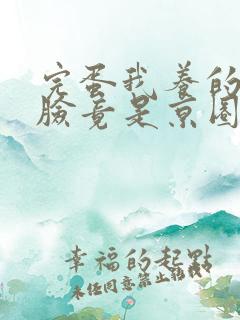 完蛋我养的
脸竟是京圈
幸福的起點
未经同意禁止转载